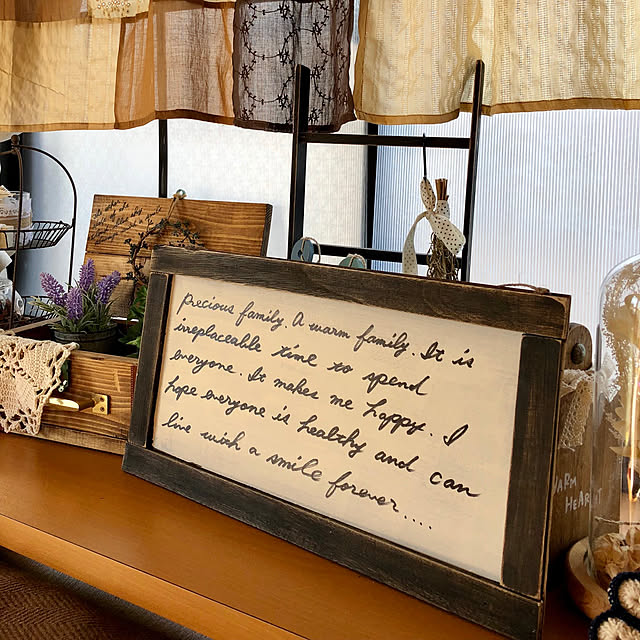 Precious family. A warm family. It is
ireplaceable time to spend
everyone. It makes me happy. I
hope everyone is healthy and can
live with a smile forever....
WARM
HEART